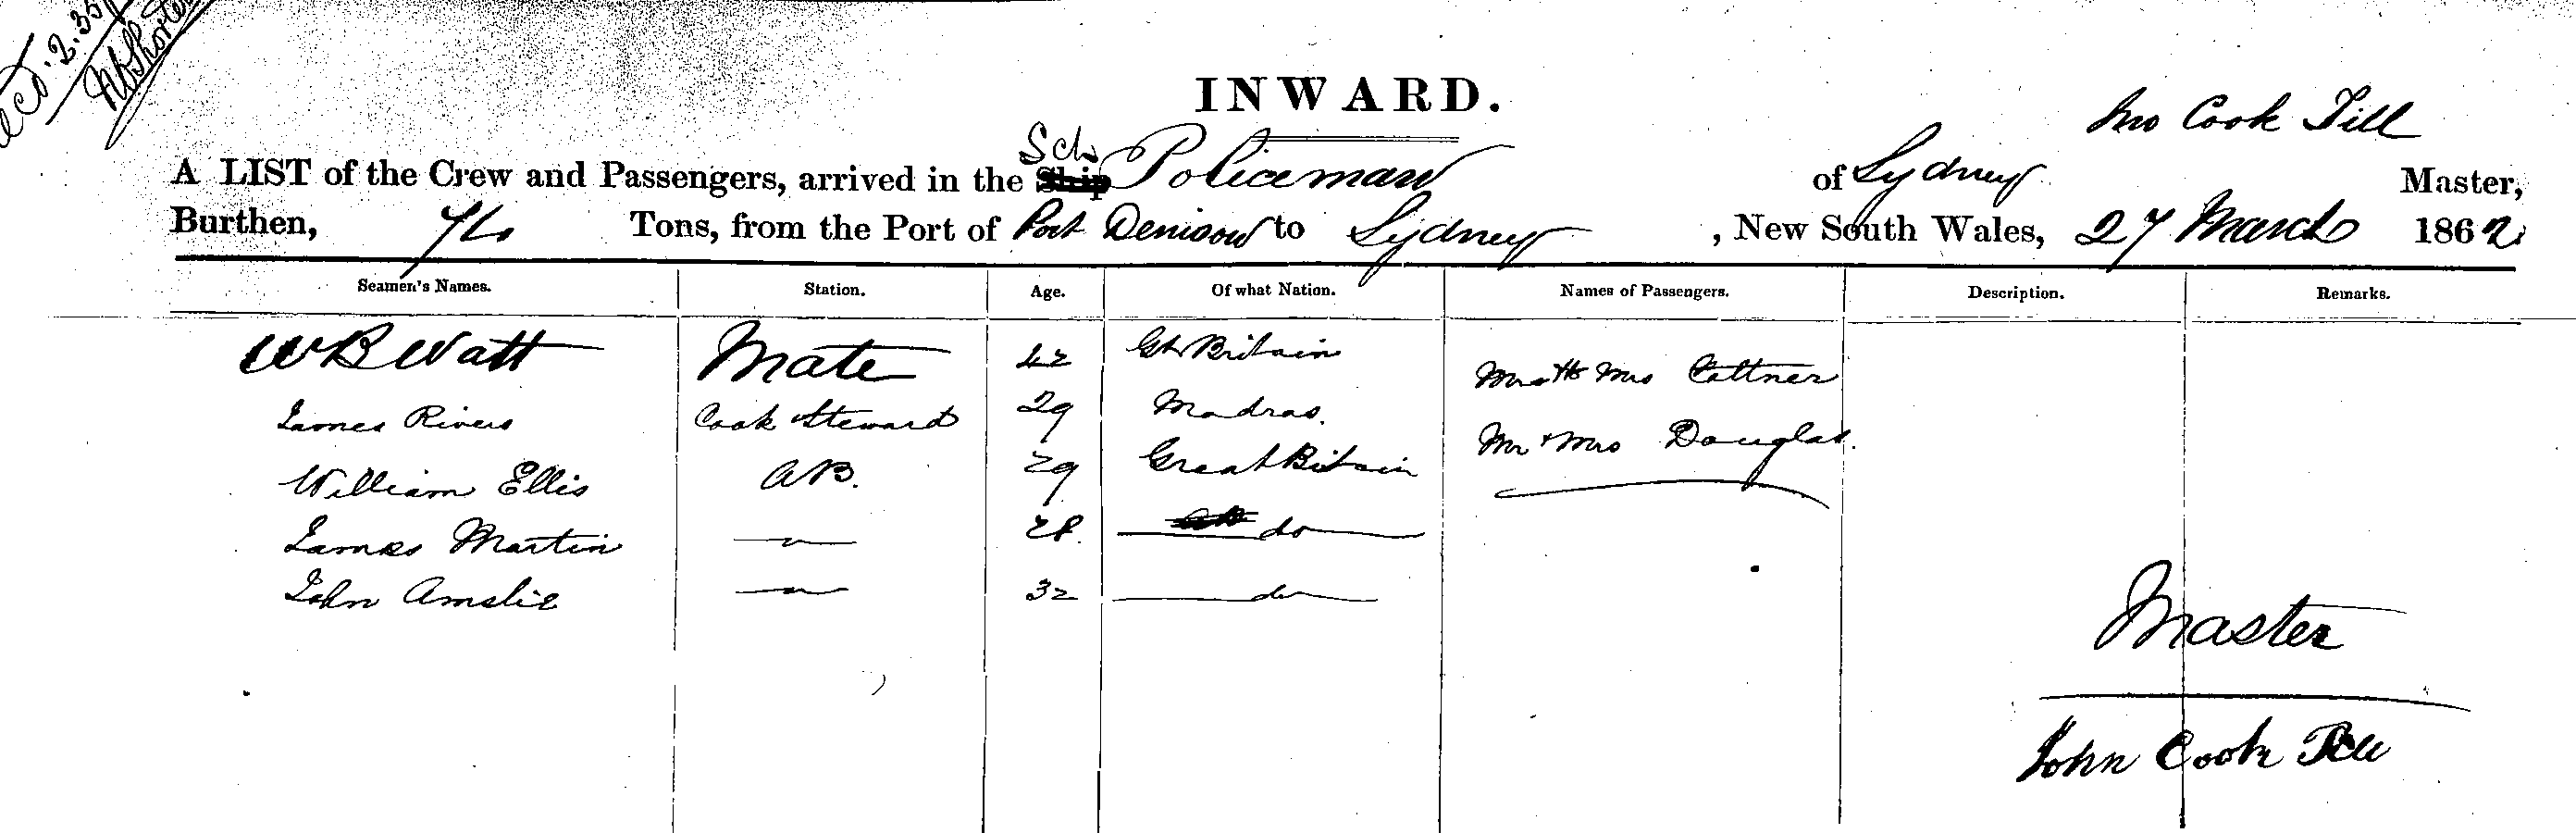 2.35
INWARD.
Jno Cook Till
A LIST of the Crew and Passengers, arrived in the Ship Sch Policeman of Sydney Master,
Burthen, 74 Tons, from the Port of Port Denison to Sydney, New South Wales, 27 March 1862
Seamen's Names. Station. Age. Of what Nation. Names of Passengers. Description. Remarks.
W B Watt Mate 42 Gt Britain Mrs Mrs
James Rivers Cook Steward 29 Madras. Mr & Mrs Douglas.
William Ellis AB. 29 Great Britain
James Martin — " — 28 do
John Amslie — " — 32 do
Master
John Cook Till